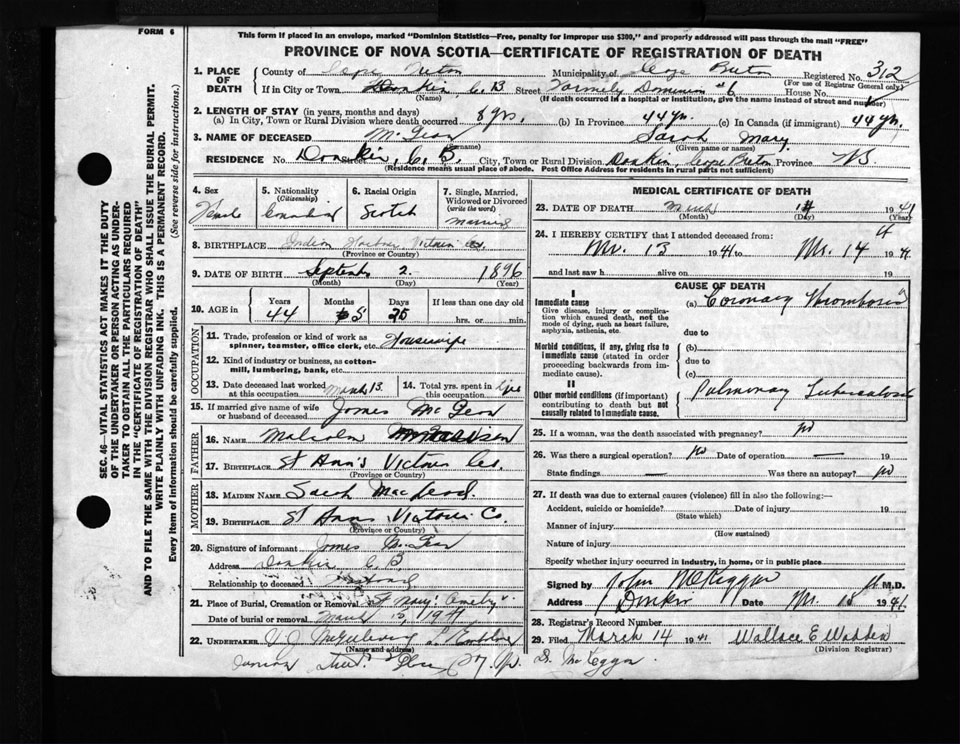 FORM 6
This form if placed in an envelope, marked "Dominion Statistics—Free, penalty for improper use $300," and properly addressed will pass through the mail "FREE"
PROVINCE OF NOVA SCOTIA—CERTIFICATE OF REGISTRATION OF DEATH
SEC. 46—VITAL STATISTICS ACT MAKES IT THE DUTY
OF THE UNDERTAKER OR PERSON ACTING AS UNDER-
TAKER TO OBTAIN ALL THE PARTICULARS REQUIRED
IN THE "CERTIFICATE OF REGISTRATION OF DEATH"
AND TO FILE THE SAME WITH THE DIVISION REGISTRAR WHO SHALL ISSUE THE BURIAL PERMIT.
WRITE PLAINLY WITH UNFADING INK. THIS IS A PERMANENT RECORD.
Every item of Information should be carefully supplied. (See reverse side for instructions.)
1. PLACE OF DEATH County of Cape Breton Municipality of Cape Breton Registered No. 312
(For use of Registrar General only)
If in City or Town Donkin, C. B. Street Formerly Dominion #6 House No.
(Name) (If death occurred in a hospital or institution, give its name instead of street and number)
2. LENGTH OF STAY (in years, months and days)
(a) In City, Town or Rural Division where death occurred 8 yrs. (b) In Province 44 yrs. (c) In Canada (if immigrant) 44 yrs.
3. NAME OF DECEASED McLean Sarah Mary
(Surname) (Given name or names)
RESIDENCE No. Street Donkin, C. B. City, Town or Rural Division Donkin, Cape Breton Province N.S.
(Residence means usual place of abode. Post Office Address for residents in rural parts not sufficient)
4. Sex Female
5. Nationality (Citizenship) Canadian
6. Racial Origin Scotch
7. Single, Married, Widowed or Divorced (write the word) Married
8. BIRTHPLACE Indian Harbour Victoria Co.
(Province or Country)
9. DATE OF BIRTH September 2. 1896
(Month) (Day) (Year)
10. AGE Years 44 Months 5 Days If less than one day old hrs. or min.
OCCUPATION
11. Trade, profession or kind of work as spinner, teamster, office clerk, etc. Housewife
12. Kind of industry or business, as cotton-mill, lumbering, bank, etc.
13. Date deceased last worked at this occupation March 13. 14. Total yrs. spent in this occupation life
15. If married give name of wife or husband of deceased James McLean
FATHER
16. NAME Malcolm
17. BIRTHPLACE St Ann's Victoria Co.
(Province or Country)
MOTHER
18. MAIDEN NAME Sarah MacLeod.
19. BIRTHPLACE St Ann Victoria Co.
(Province or Country)
20. Signature of informant James McLean
Address Donkin C. B.
Relationship to deceased Husband
21. Place of Burial, Cremation or Removal
Date of burial or removal March 1941
22. UNDERTAKER
(Name and address)
MEDICAL CERTIFICATE OF DEATH
23. DATE OF DEATH March 14 1941
(Month) (Day) (Year)
24. I HEREBY CERTIFY that I attended deceased from:
Mr. 13 1941 to Mr. 14 1941
and last saw h alive on 19
CAUSE OF DEATH
I
Immediate cause (a) Coronary Thrombosis
Give disease, injury or complication which caused death, not the mode of dying, such as heart failure, asphyxia, asthenia, etc.
due to
Morbid conditions, if any, giving rise to immediate cause (stated in order proceeding backwards from immediate cause).
(b)
due to
(c)
II
Other morbid conditions (if important) contributing to death but not causally related to immediate cause. Pulmonary Tuberculosis
25. If a woman, was the death associated with pregnancy? no
26. Was there a surgical operation? no Date of operation — 19
State findings — Was there an autopsy? no
27. If death was due to external causes (violence) fill in also the following:—
Accident, suicide or homicide? Date of injury 19
(State which)
Manner of injury
(How sustained)
Nature of injury
Specify whether injury occurred in industry, in home, or in public place
Signed by John McKeggan M.D.
Address Donkin Date Mr. 1941
28. Registrar's Record Number
29. Filed March 14 1941 Wallace E Wadden
(Division Registrar)
D. McKeggan.